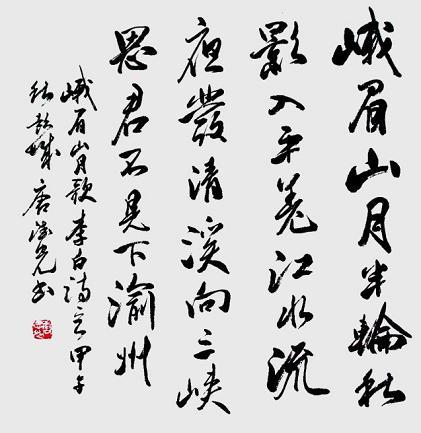 峨眉山月半輪秋
影入平羌江水流
夜發清溪向三峽
思君不見下渝州
峨眉山月歌李白詩甲午
唐書